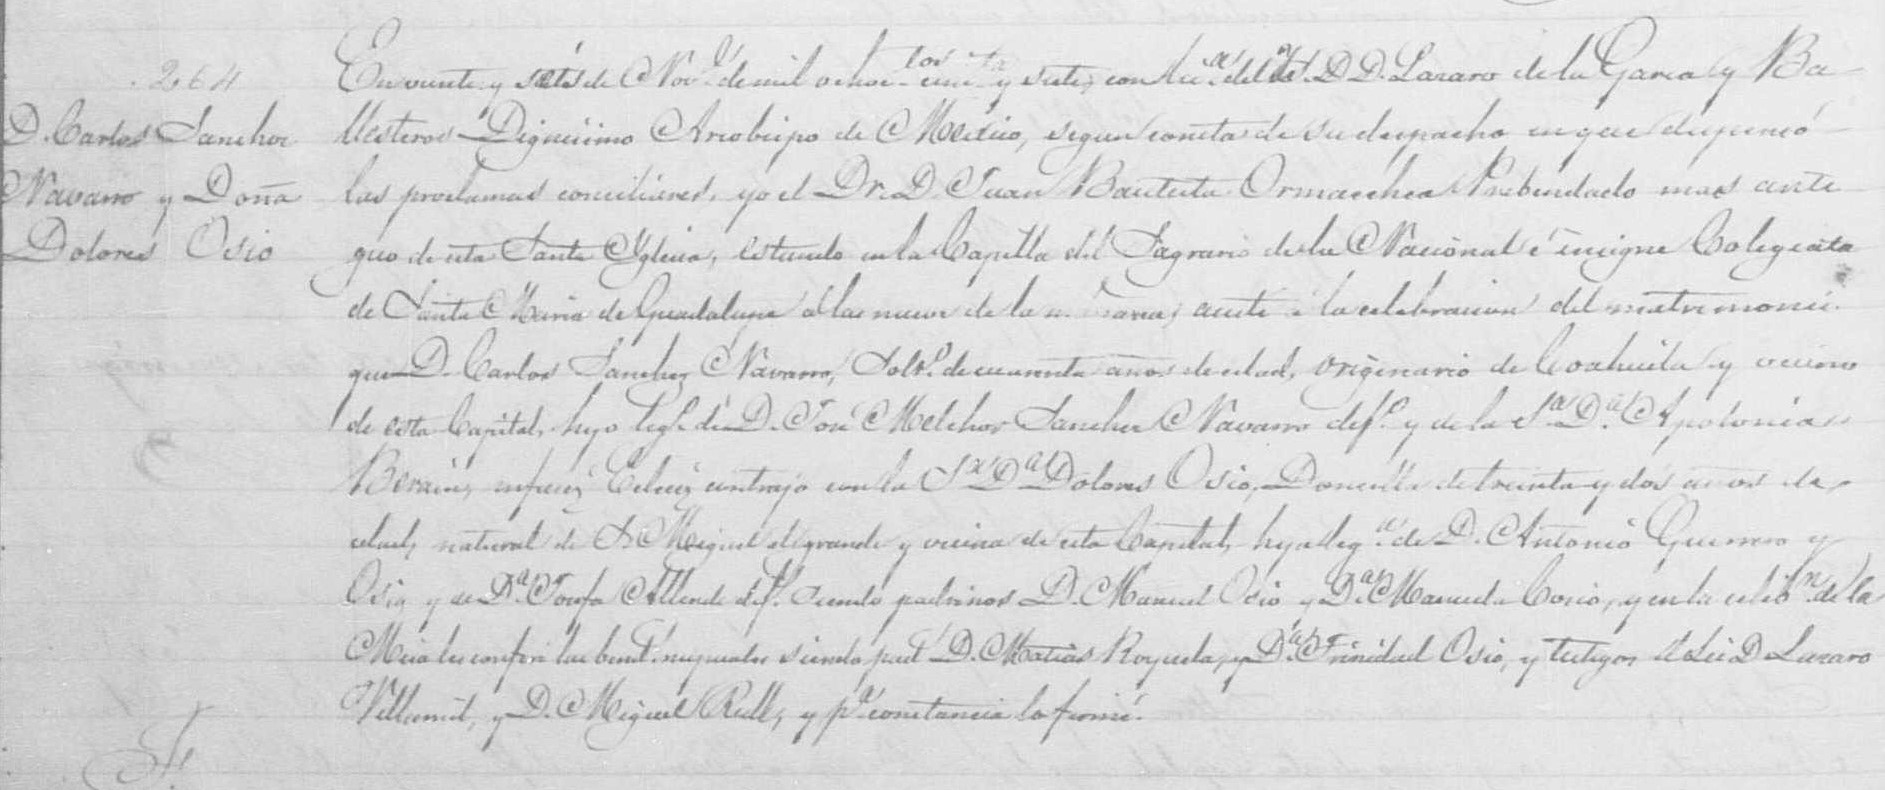 264
D. Carlos Sanchez
Navarro y Doña
Dolores Osio
En veinte y seis de Nov.e de mil ochoc.tos cinc.ta y siete, con lic.a del D. D. Lazaro de la Garza y Ba
llesteros Dignisimo Arzobispo de Mexico, segun consta de su despacho en que dispensó
las proclamas conciliares, yo el Dr. D. Juan Bautista Ormaechea Prebendado mas anti
guo de esta Santa Yglesia, estando en la Capilla del Sagrario de la Nacional é insigne Colegiata
de Santa Maria de Guadalupe á las nueve de la asistí á la celebracion del matrimonio
que D. Carlos Sanchez Navarro, Solt.o de cuarenta años de edad, originario de Coahuila y vecino
de esta Capital, hijo leg.o de D. José Melchor Sanchez Navarro def.o y de la S.a D.a Apolonia
Berain, contrajo con la S.a D.a Dolores Osio, Doncella de treinta y dos años de
edad, natural de S. Miguel el grande y vecina de esta Capital, hija leg.a de D. Antonio Guerrero y
Osio y de D.a Josefa Allende def.s siendo padrinos D. Manuel Osio y D.a Manuela Cosio, y en la celeb.n de la
Misa les conferí las bend.s nupciales siendo pad.s D. Matias Royuela, y D.a Trinidad Osio, y testigos el Lic. D Lazaro
Villamil, y D. Miguel Rull, y p.a constancia lo firmé.